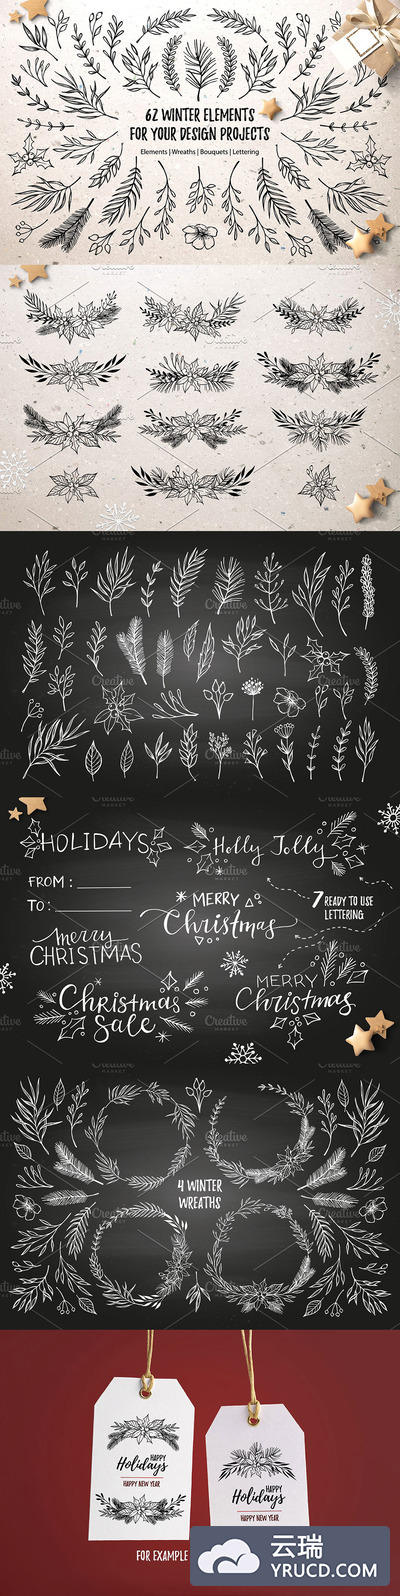 62 WINTER ELEMENTS
FOR YOUR DESIGN PROJECTS
Elements | Wreaths | Bouquets | Lettering
HOLIDAYS
Holly Jolly
FROM :
TO :
MERRY
Christmas
7 READY TO USE
LETTERING
merry
CHRISTMAS
Christmas
Sale
MERRY
Christmas
4 WINTER
WREATHS
HAPPY
Holidays
HAPPY NEW YEAR
HAPPY
Holidays
HAPPY NEW YEAR
FOR EXAMPLE
云瑞
YRUCD.COM